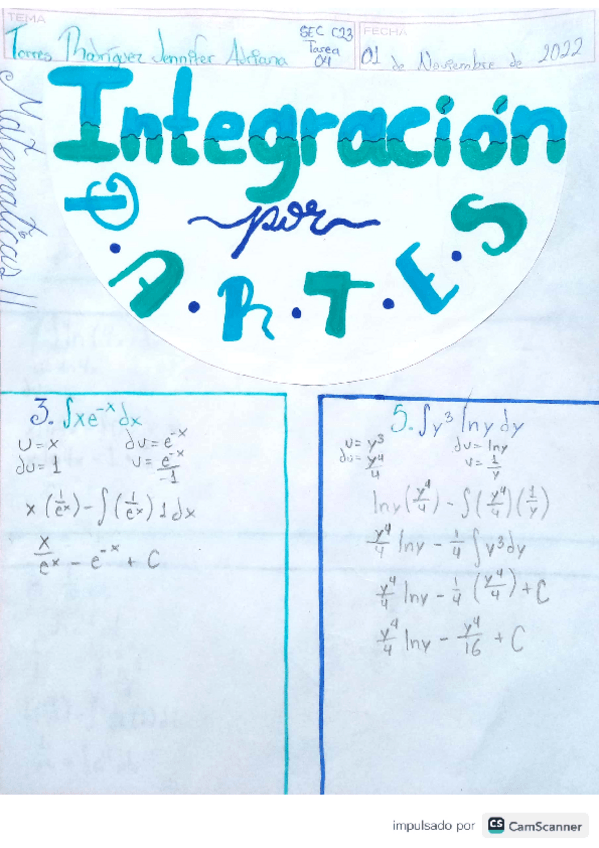 TEMA
SEC C23
FECHA
Torres Rodríguez Jennifer Adriana
Tarea
04
01 de Noviembre de 2022
Matemáticas II
Integración
por
P.A.R.T.E.S
3. ∫xe^-x dx
u=x dv=e^-x
du=1 v=e^-x/-1
x(1/e^x)-∫(1/e^x)1dx
x/e^x - e^-x + C
5. ∫y³ lny dy
u=y³ dv=lny
du=y⁴/4 v=1/y
lny(y⁴/4)-∫(y⁴/4)(1/y)
y⁴/4 lny - 1/4 ∫y³dy
y⁴/4 lny - 1/4 (y⁴/4)+C
y⁴/4 lny - y⁴/16 + C
impulsado por CS CamScanner